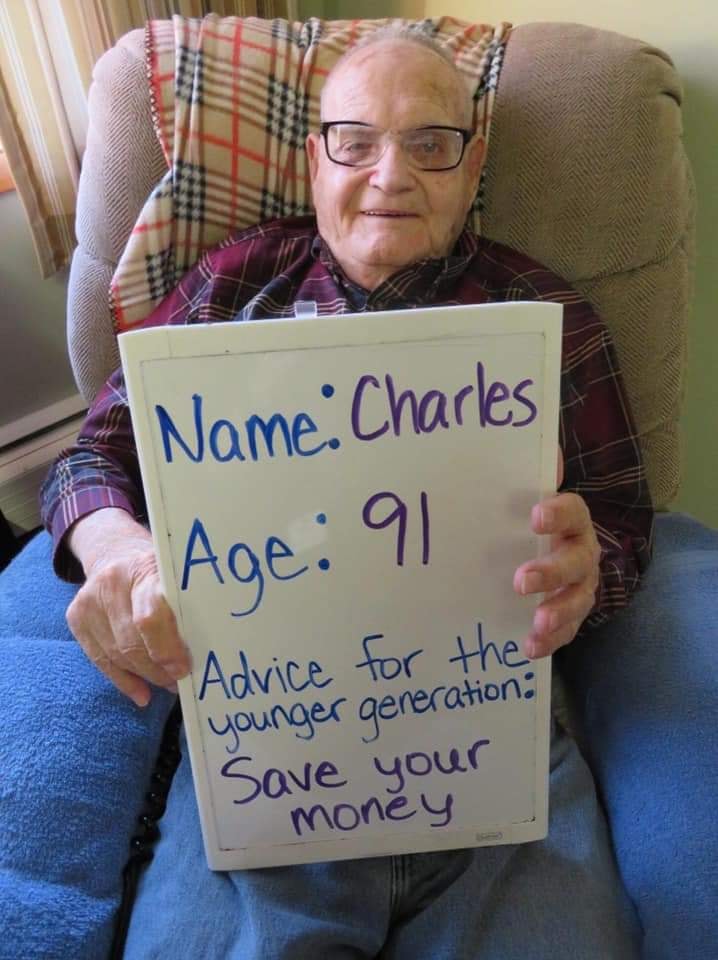 Name: Charles
Age: 91
Advice for the
younger generation:
Save your
money